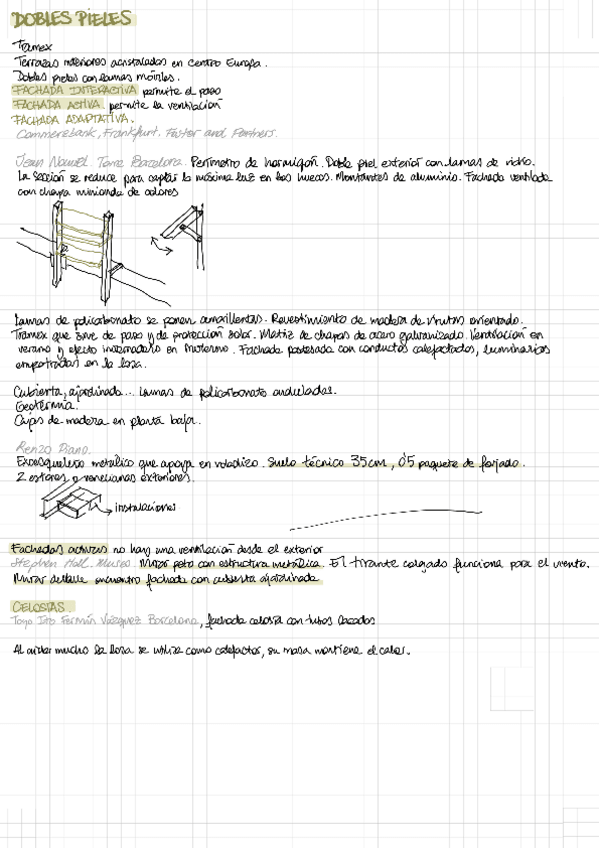 DOBLES PIELES
Tramex
Terrazas interiores acristaladas en Centro Europa.
Dobles pieles con lamas móviles.
FACHADA INTERACTIVA permite el paso
FACHADA ACTIVA permite la ventilación
FACHADA ADAPTATIVA.
Commerzbank, Frankfurt. Foster and Partners.
Jean Nouvel. Torre Barcelona. Perímetro de hormigón. Doble piel exterior con lamas de vidrio.
La sección se reduce para captar la máxima luz en los huecos. Montantes de aluminio. Fachada ventilada
con chapa minionda de colores
Lamas de policarbonato se ponen amarillentas. Revestimiento de madera de virutas orientado.
Tramex que sirve de paso y de protección solar. Matriz de chapas de acero galvanizado. Ventilación en
verano y efecto invernadero en invierno. Fachada postesada con conductos calefactados, luminarias
empotradas en la losa.
Cubierta, ajardinada... Lamas de policarbonato onduladas.
Geotermia.
Cajas de madera en planta baja.
Renzo Piano.
Exoesqueleto metálico que apoya en voladizo. Suelo técnico 35cm, 0'5 paquete de forjado.
2 estores o venecianas exteriores.
instalaciones
Fachadas activas no hay una ventilación desde el exterior
Stephen Holl. Museo. Mirar peto con estructura metálica. El tirante colgado funciona para el viento.
Mirar detalle encuentro fachada con cubierta ajardinada
CELOSÍAS.
Toyo Ito Fermín Vázquez Barcelona, fachada celosía con tubos lacados
Al aislar mucho la losa se utiliza como calefactor, su masa mantiene el calor.